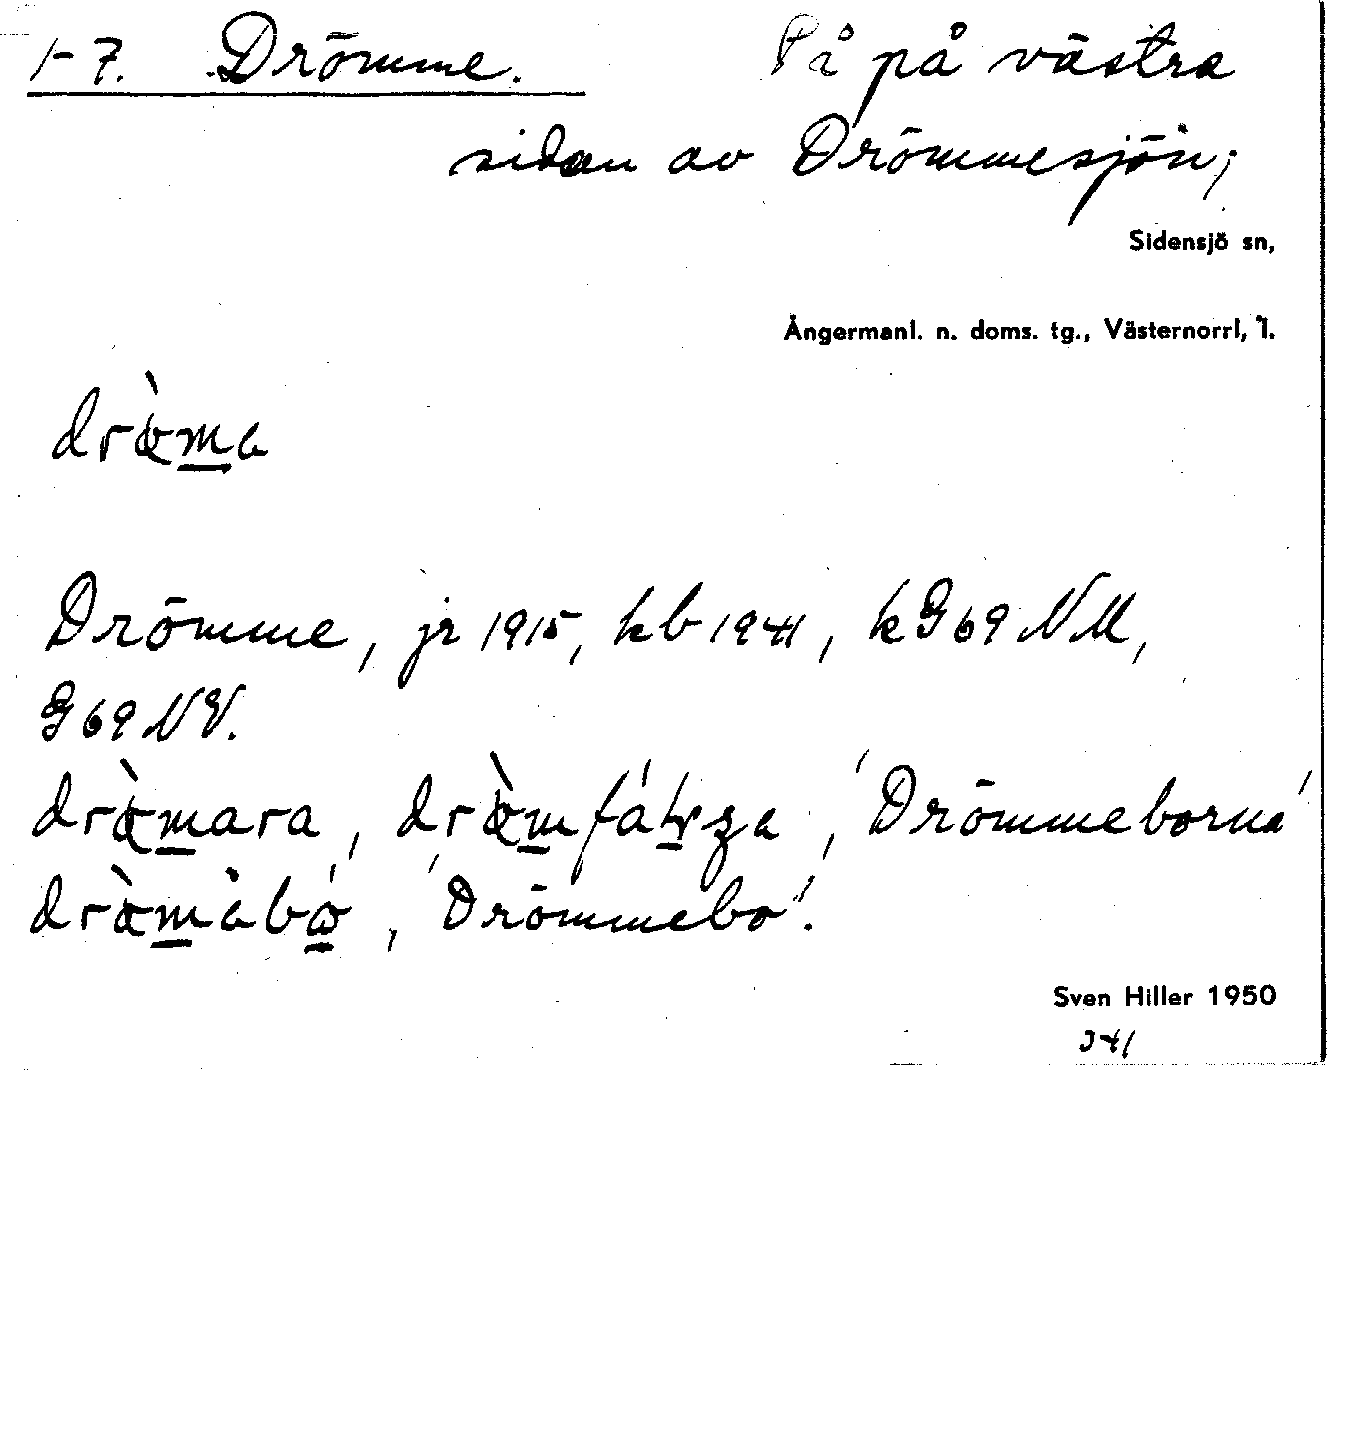 1-7. Drömme. På på västra
sidan av Drömmesjön;
Sidensjö sn,
Ångermanl. n. doms. tg., Västernorrl, l.
dræ̀m̲a
Drömme, jr 1915, kb 1941, kG69NM,
G69NV.
dræ̀m̲ara, 'Drömmeborna'
dræ̀m̲åbo̲, 'Drömmebo'.
Sven Hiller 1950
341